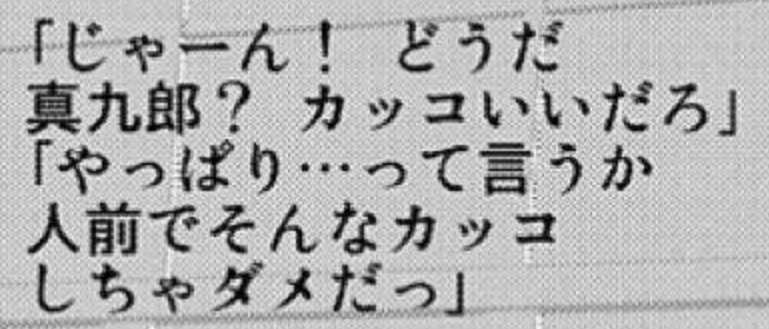 「じゃーん！ どうだ
真九郎？ カッコいいだろ」
「やっぱり…って言うか
人前でそんなカッコ
しちゃダメだっ」